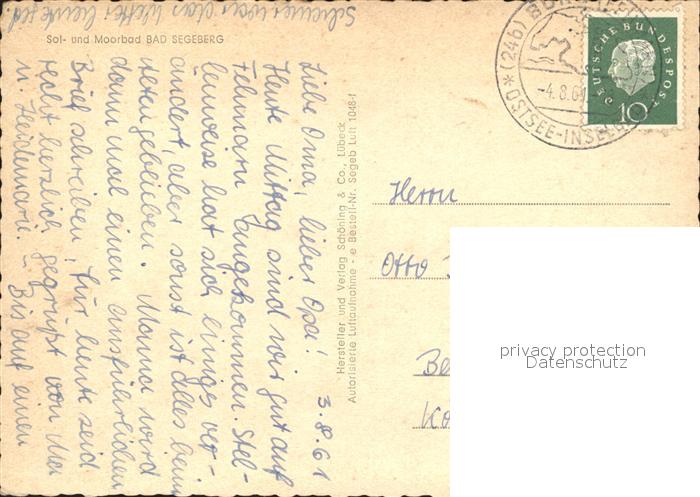 Sol- und Moorbad BAD SEGEBERG
3.8.61
Liebe Oma, lieber Opa!
Heute Mittag sind wir gut auf
Fehmarn angekommen. Stel-
lenweise hat sich einiges ver-
ändert, aber sonst ist alles beim
alten geblieben. Mama wird
dann mal einen ausführlichen
Brief schreiben. Für heute seid
recht herzlich gegrüßt von
u. Heidemarie. – Bis auf einen
war das Wetter heute
Hersteller und Verlag Schöning & Co., Lübeck
Autorisierte Luftaufnahme - e Bestell-Nr. Segeb Luft 1048-1
(24b) BURG
-4.8.61
OSTSEE-INSEL
DEUTSCHE BUNDESPOST
10
Herrn
Otto
privacy protection
Datenschutz